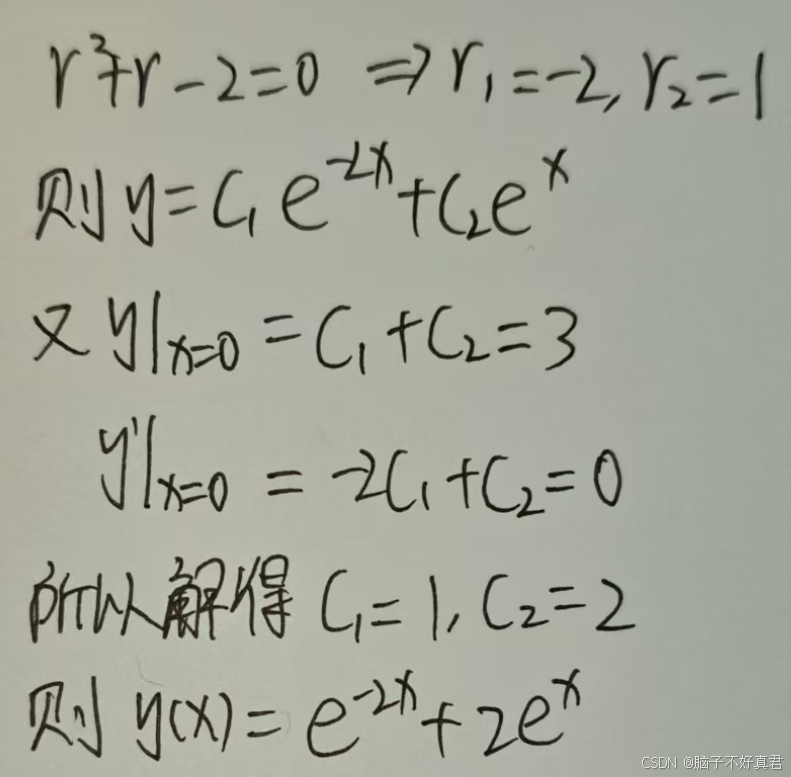 r²+r-2=0 ⇒ r₁=-2, r₂=1
则 y=C₁e^{-2x}+C₂e^{x}
又 y|ₓ₌₀ = C₁+C₂=3
y'|ₓ₌₀ = -2C₁+C₂=0
所以解得 C₁=1, C₂=2
则 y(x)=e^{-2x}+2e^{x}
CSDN @脑子不好真君